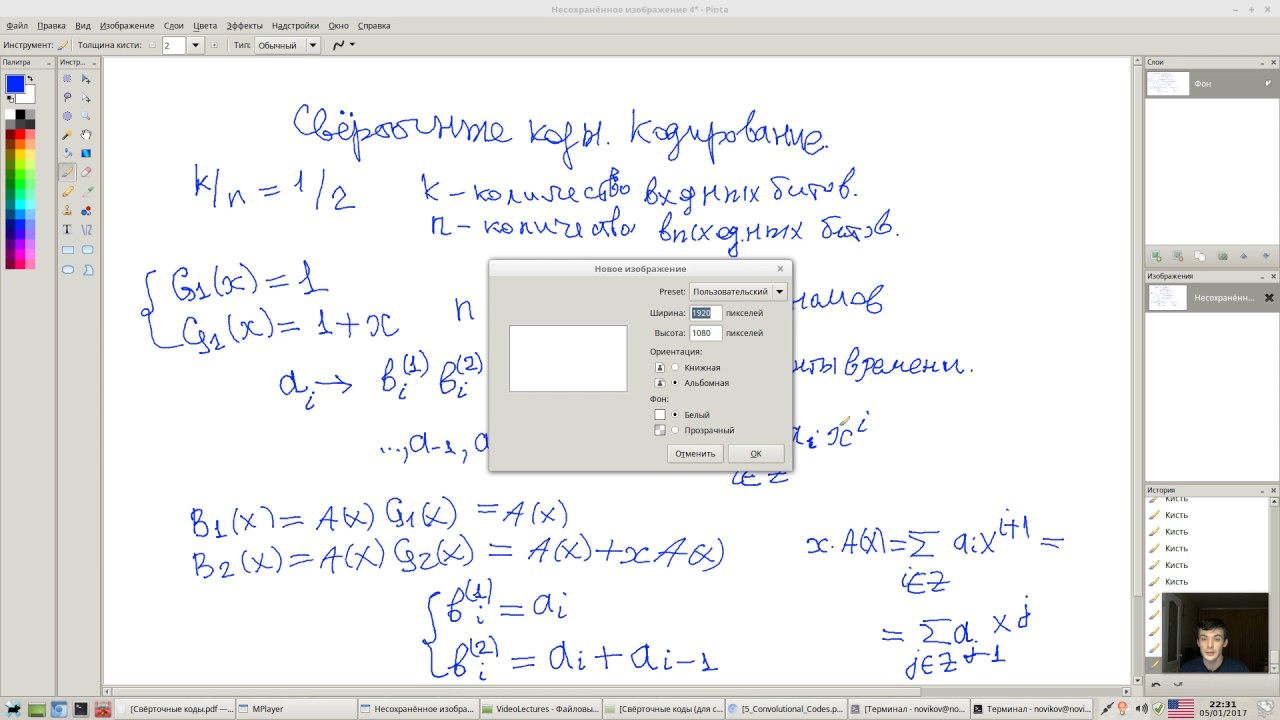 Несохранённое изображение 4* - Pinta
Файл Правка Вид Изображение Слои Цвета Эффекты Надстройки Окно Справка
Инструмент: Толщина кисти: 2 Тип: Обычный
Палитра
Инстр...
Свёрточные коды. Кодирование.
k/n = 1/2 k - количество входных битов.
n - количество выходных битов.
G1(x) = 1
G2(x) = 1 + x
n
номов
a_i → b_i^(1) b_i^(2)
нты времени.
..., a-1, a
a_i x^i
i∈Z
B1(x) = A(x) G1(x) = A(x)
B2(x) = A(x) G2(x) = A(x) + xA(x)
x·A(x) = ∑ a_i x^(i+1) =
i∈Z
b_i^(1) = a_i
b_i^(2) = a_i + a_i-1
= ∑ a_j-1 x^j
j∈Z
Новое изображение
Preset: Пользовательский
Ширина: 1920 пикселей
Высота: 1080 пикселей
Ориентация:
Книжная
Альбомная
Фон:
Белый
Прозрачный
Отменить OK
Слои
Фон
Изображения
Несохранённ...
История
Кисть
Кисть
Кисть
Кисть
Кисть
Кисть
[Свёрточные коды.pdf —...
MPlayer
Несохранённое изобра...
VideoLectures - Файловы...
[Свёрточные коды (для с...
[5_Convolutional_Codes.p...
[Терминал - novikov@no...
Терминал - novikov@novi...
22:31
05/01/2017